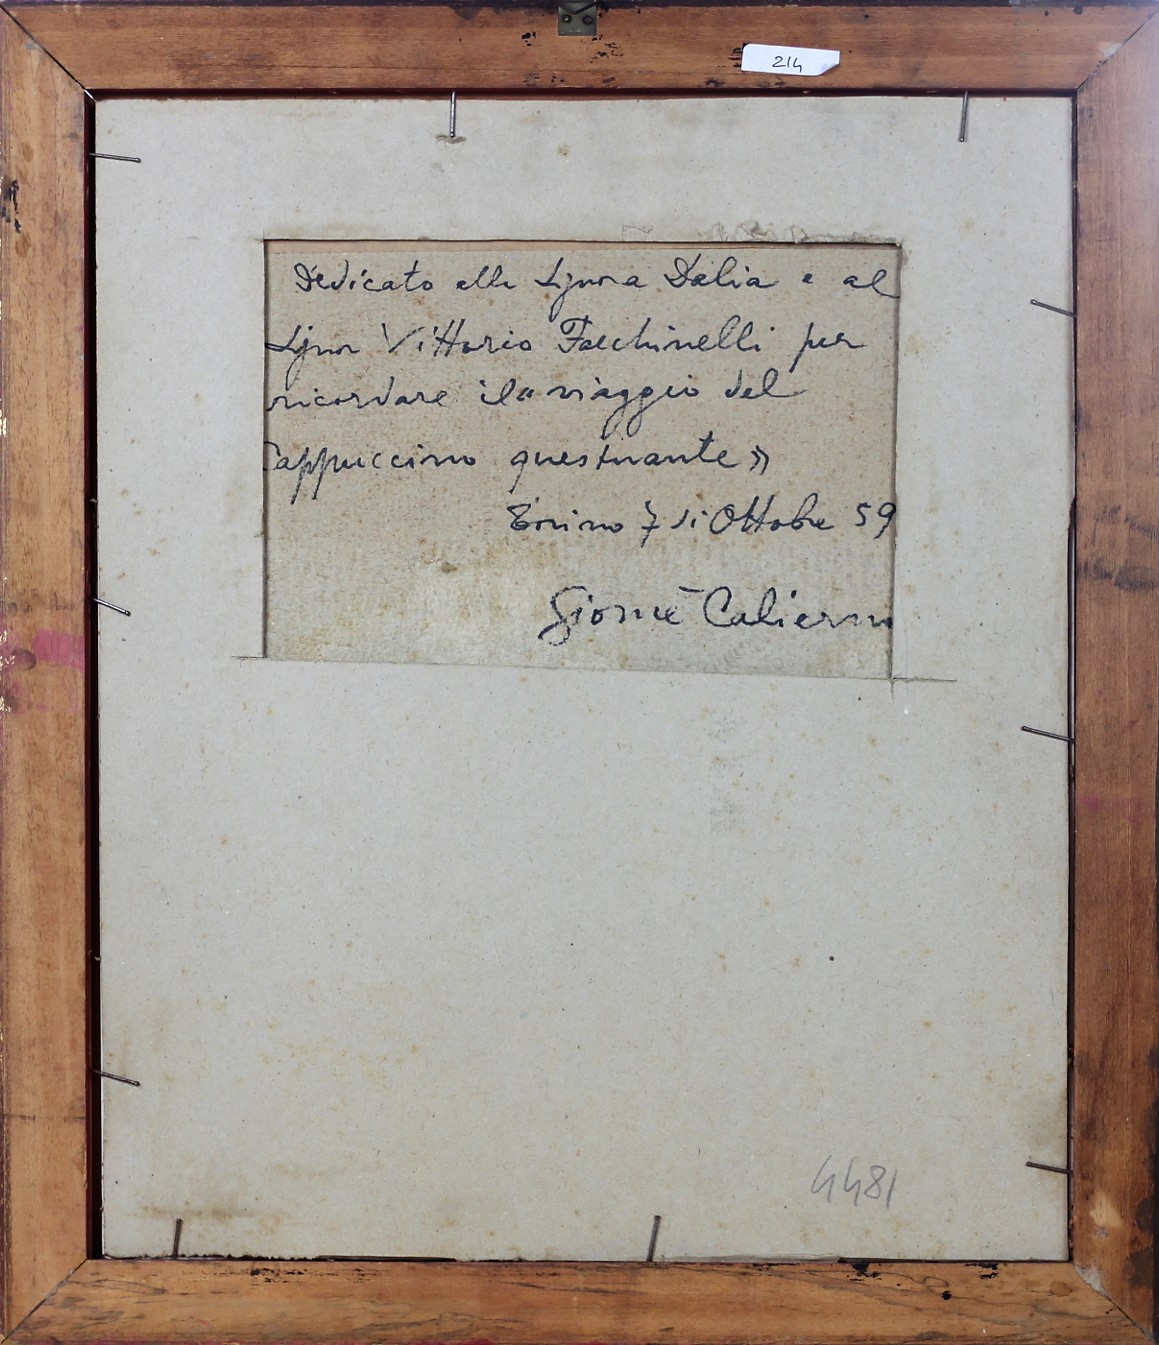 214
Dedicato alla Signora Dalia e al
Signor Vittorio Facchinelli per
ricordare il « viaggio del
Cappuccino questuante »
Torino 7 di Ottobre 59
Giomè Calierno
4481